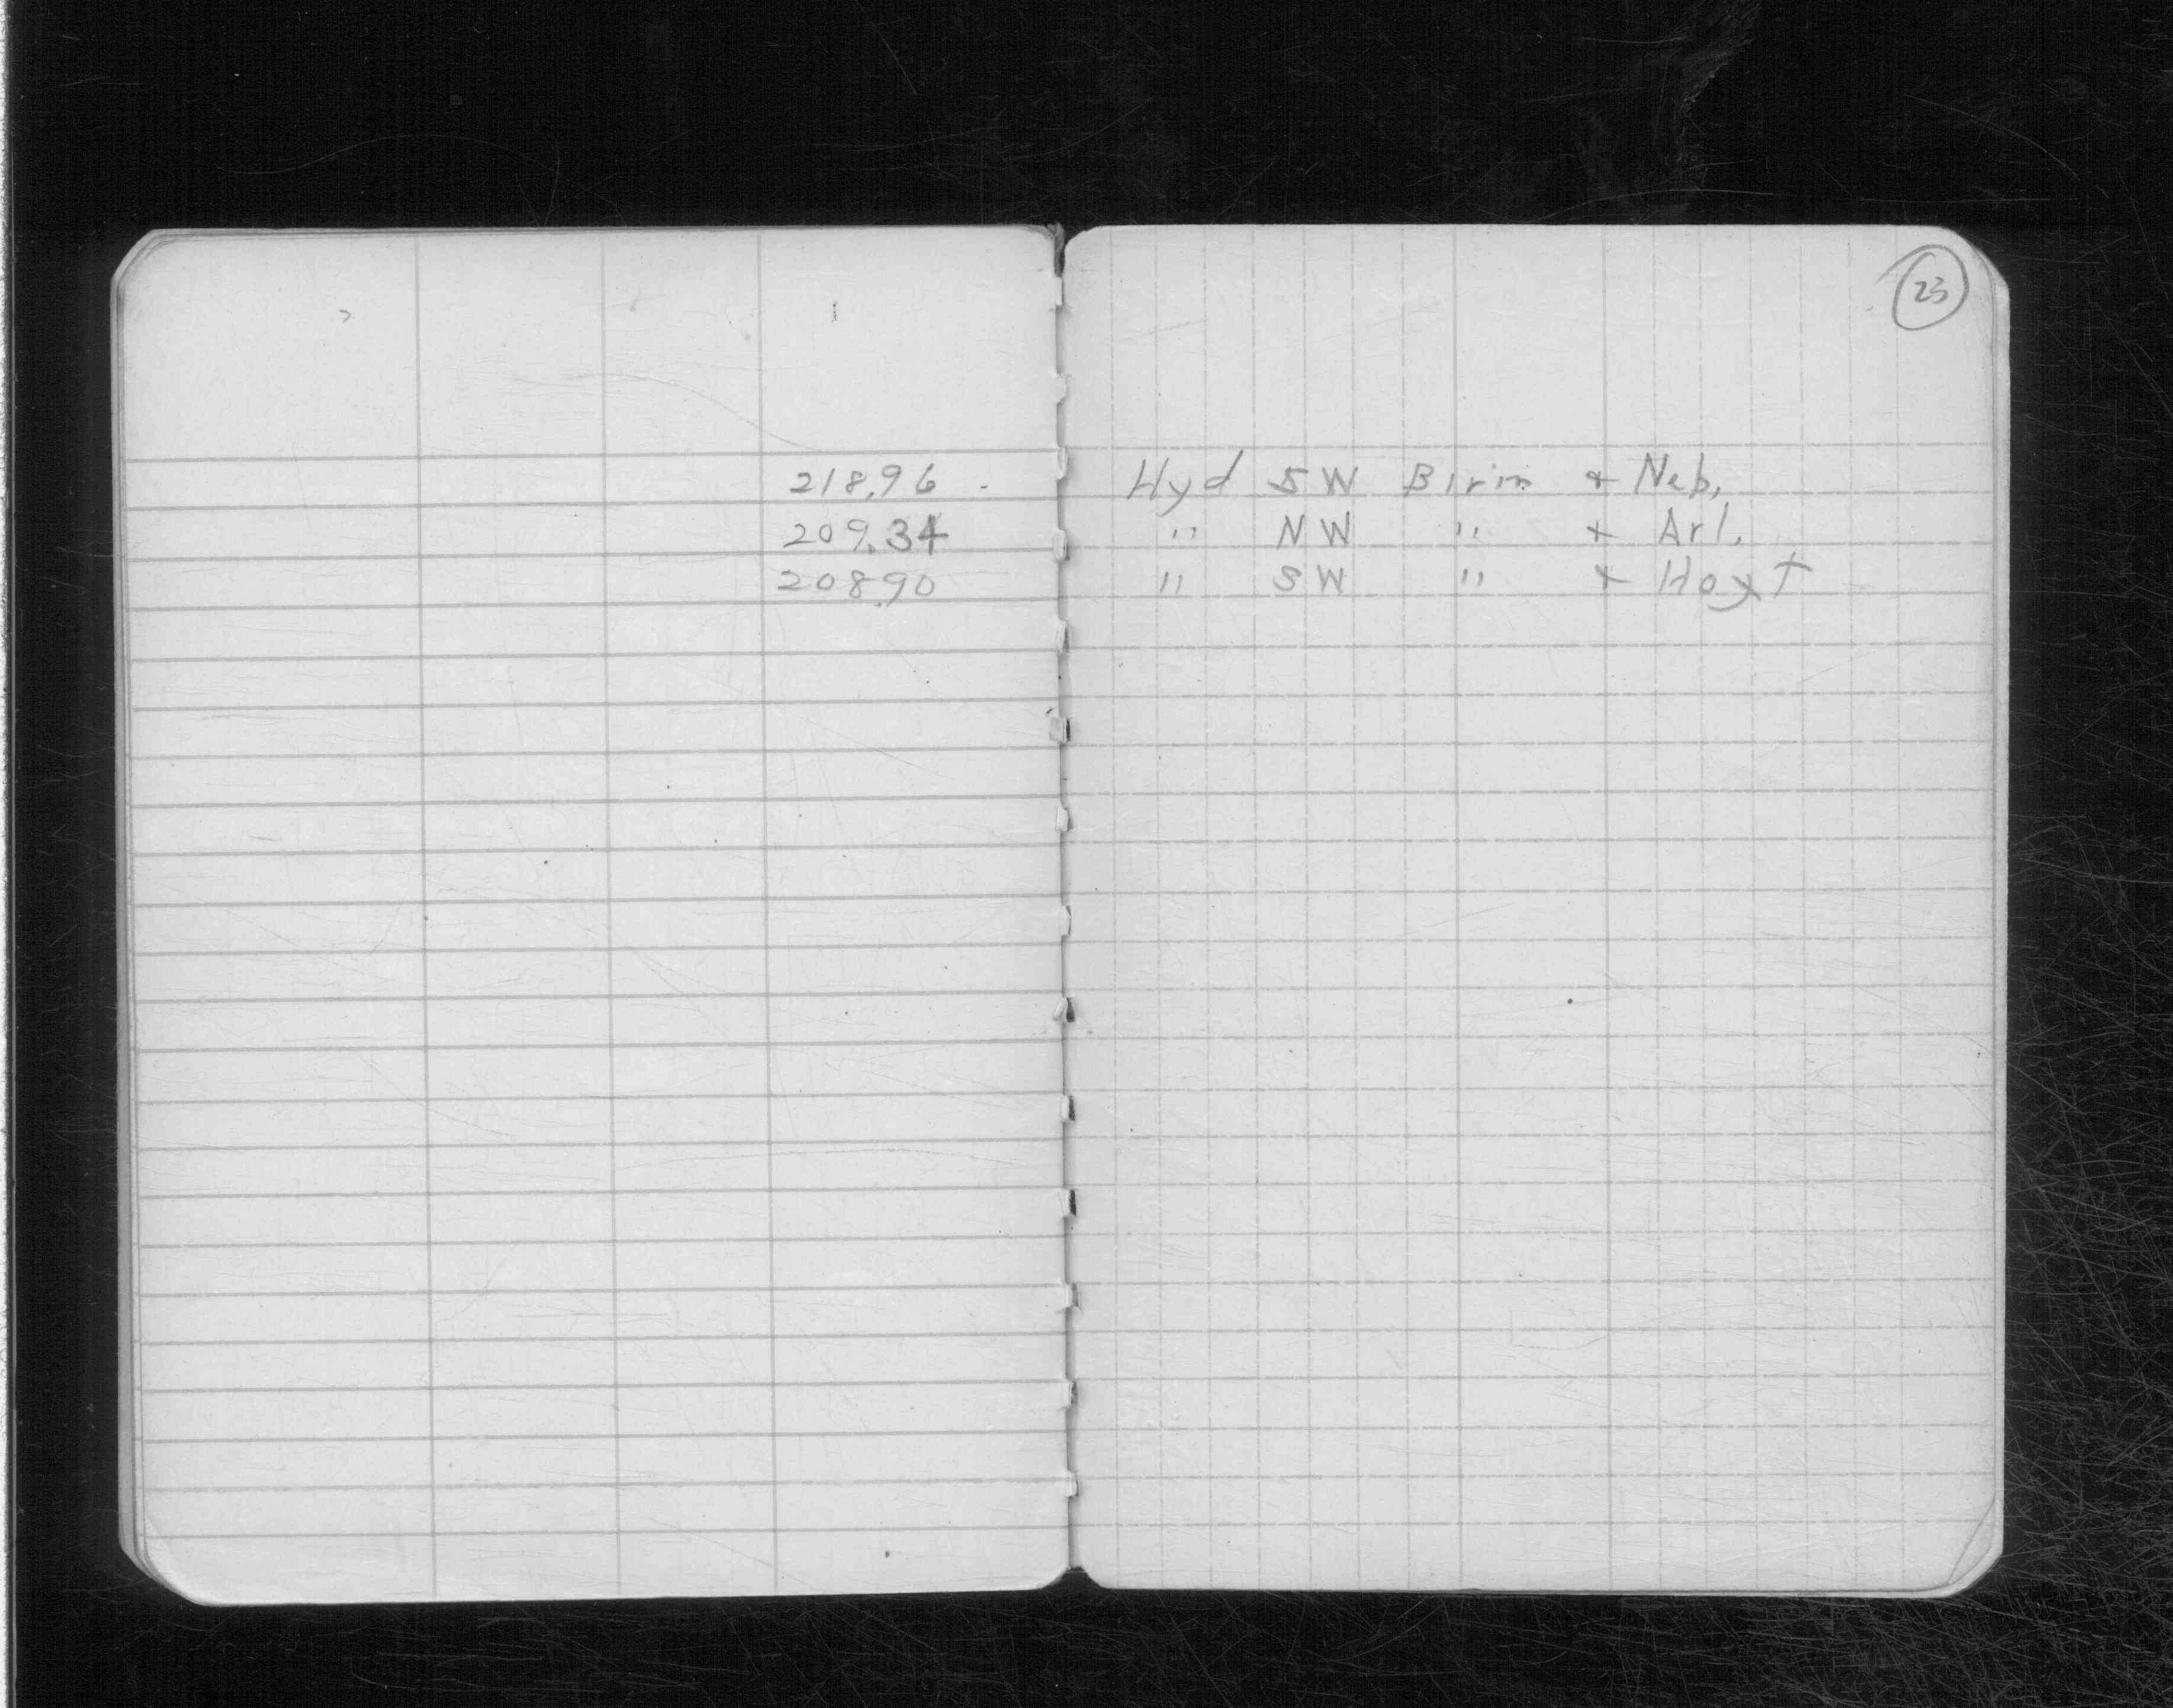 23
218.96 - Hyd SW Birm & Neb.
209.34 " NW " + Arl.
208.90 " SW " + Hoyt